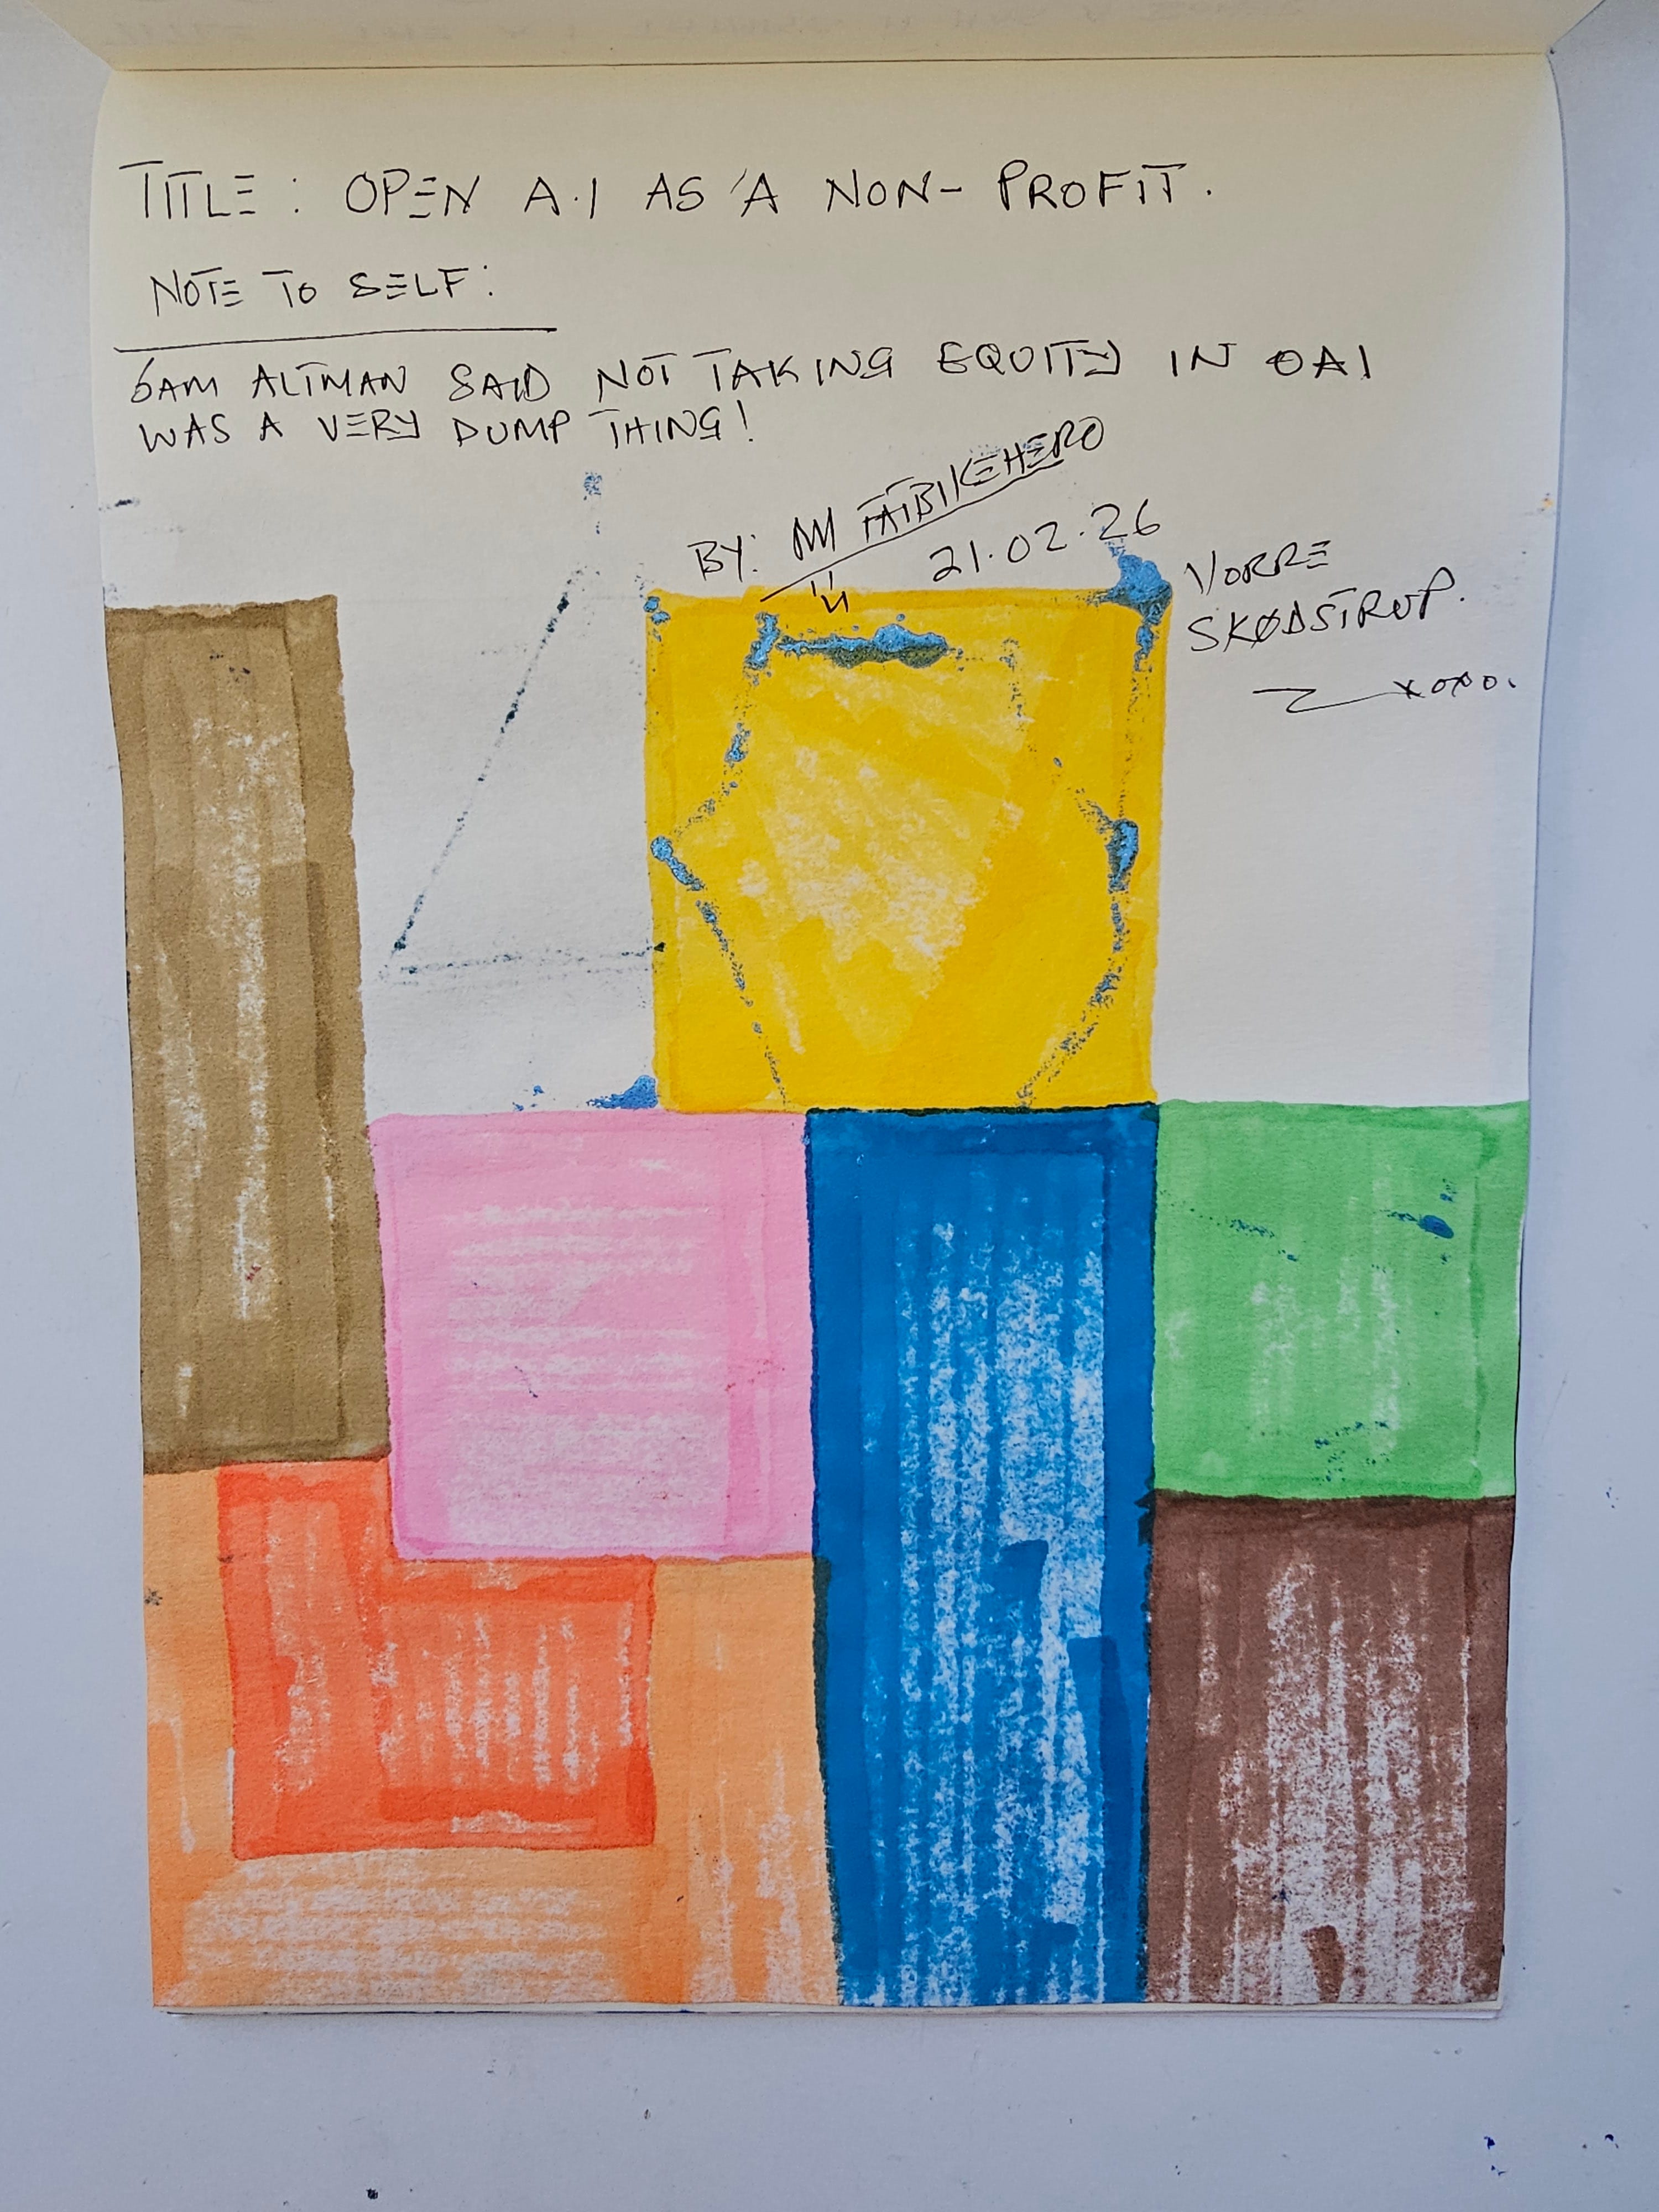 TITLE: OPEN A.I AS A NON-PROFIT.
NOTE TO SELF:
SAM ALTMAN SAID NOT TAKING EQUITY IN OAI
WAS A VERY DUMP THING!
BY: FATBIKEHERO
21.02.26
VORRE
SKØDSTRUP.
XOXO.